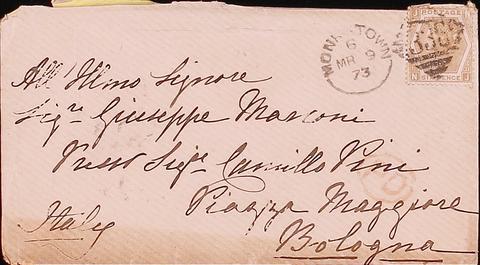 MONKSTOWN
6
MR 9
73
POSTAGE
SIX PENCE
N J
All' Illmo Signore
Sigre Giuseppe Marconi
Presso Sigr Camillo Pini
Piazza Maggiore
Italy
Bologna